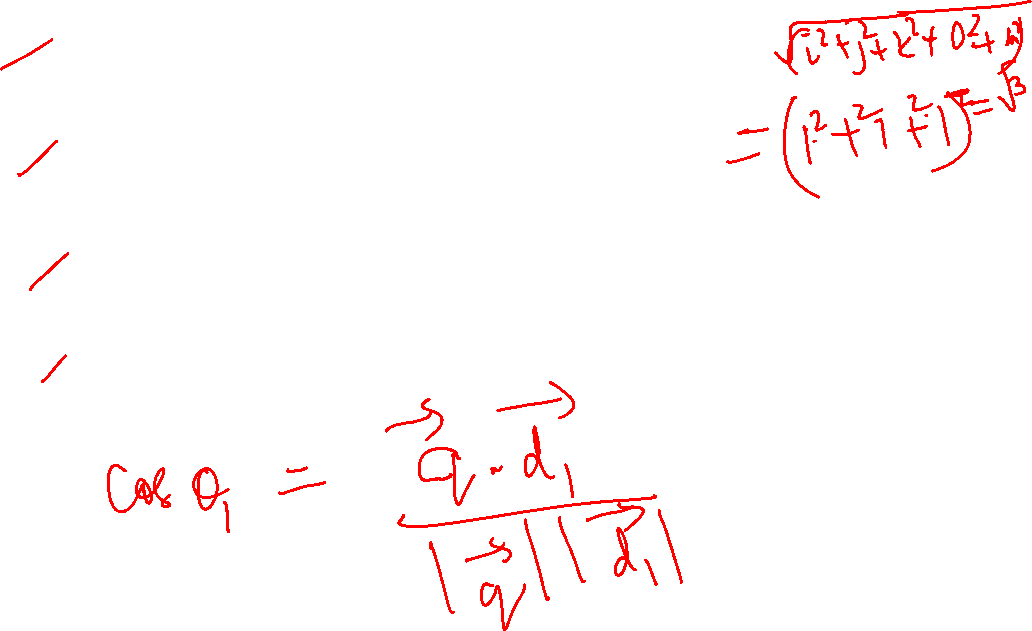 √(i²+j²+k²+0²+
=(1²+1²+1²)=√3
cos θ₁ = q⃗ · d⃗₁ / |q⃗| |d⃗₁|